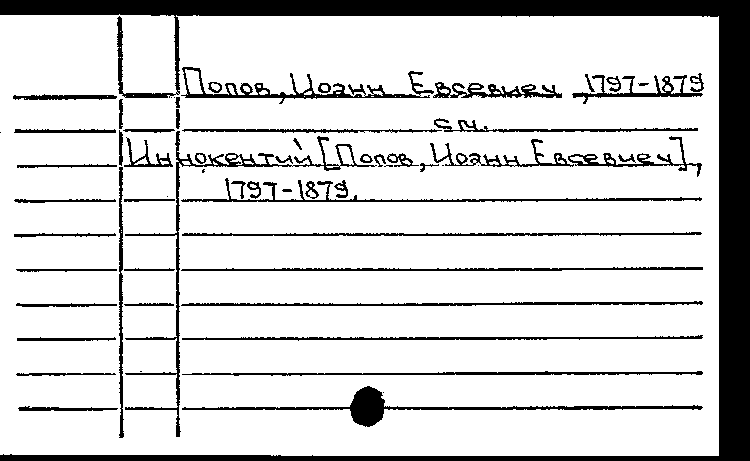 Попов, Иоанн Евсевиеч, 1797-1879
см.
Иннокентий [Попов, Иоанн Евсевиеч],
1797-1879.